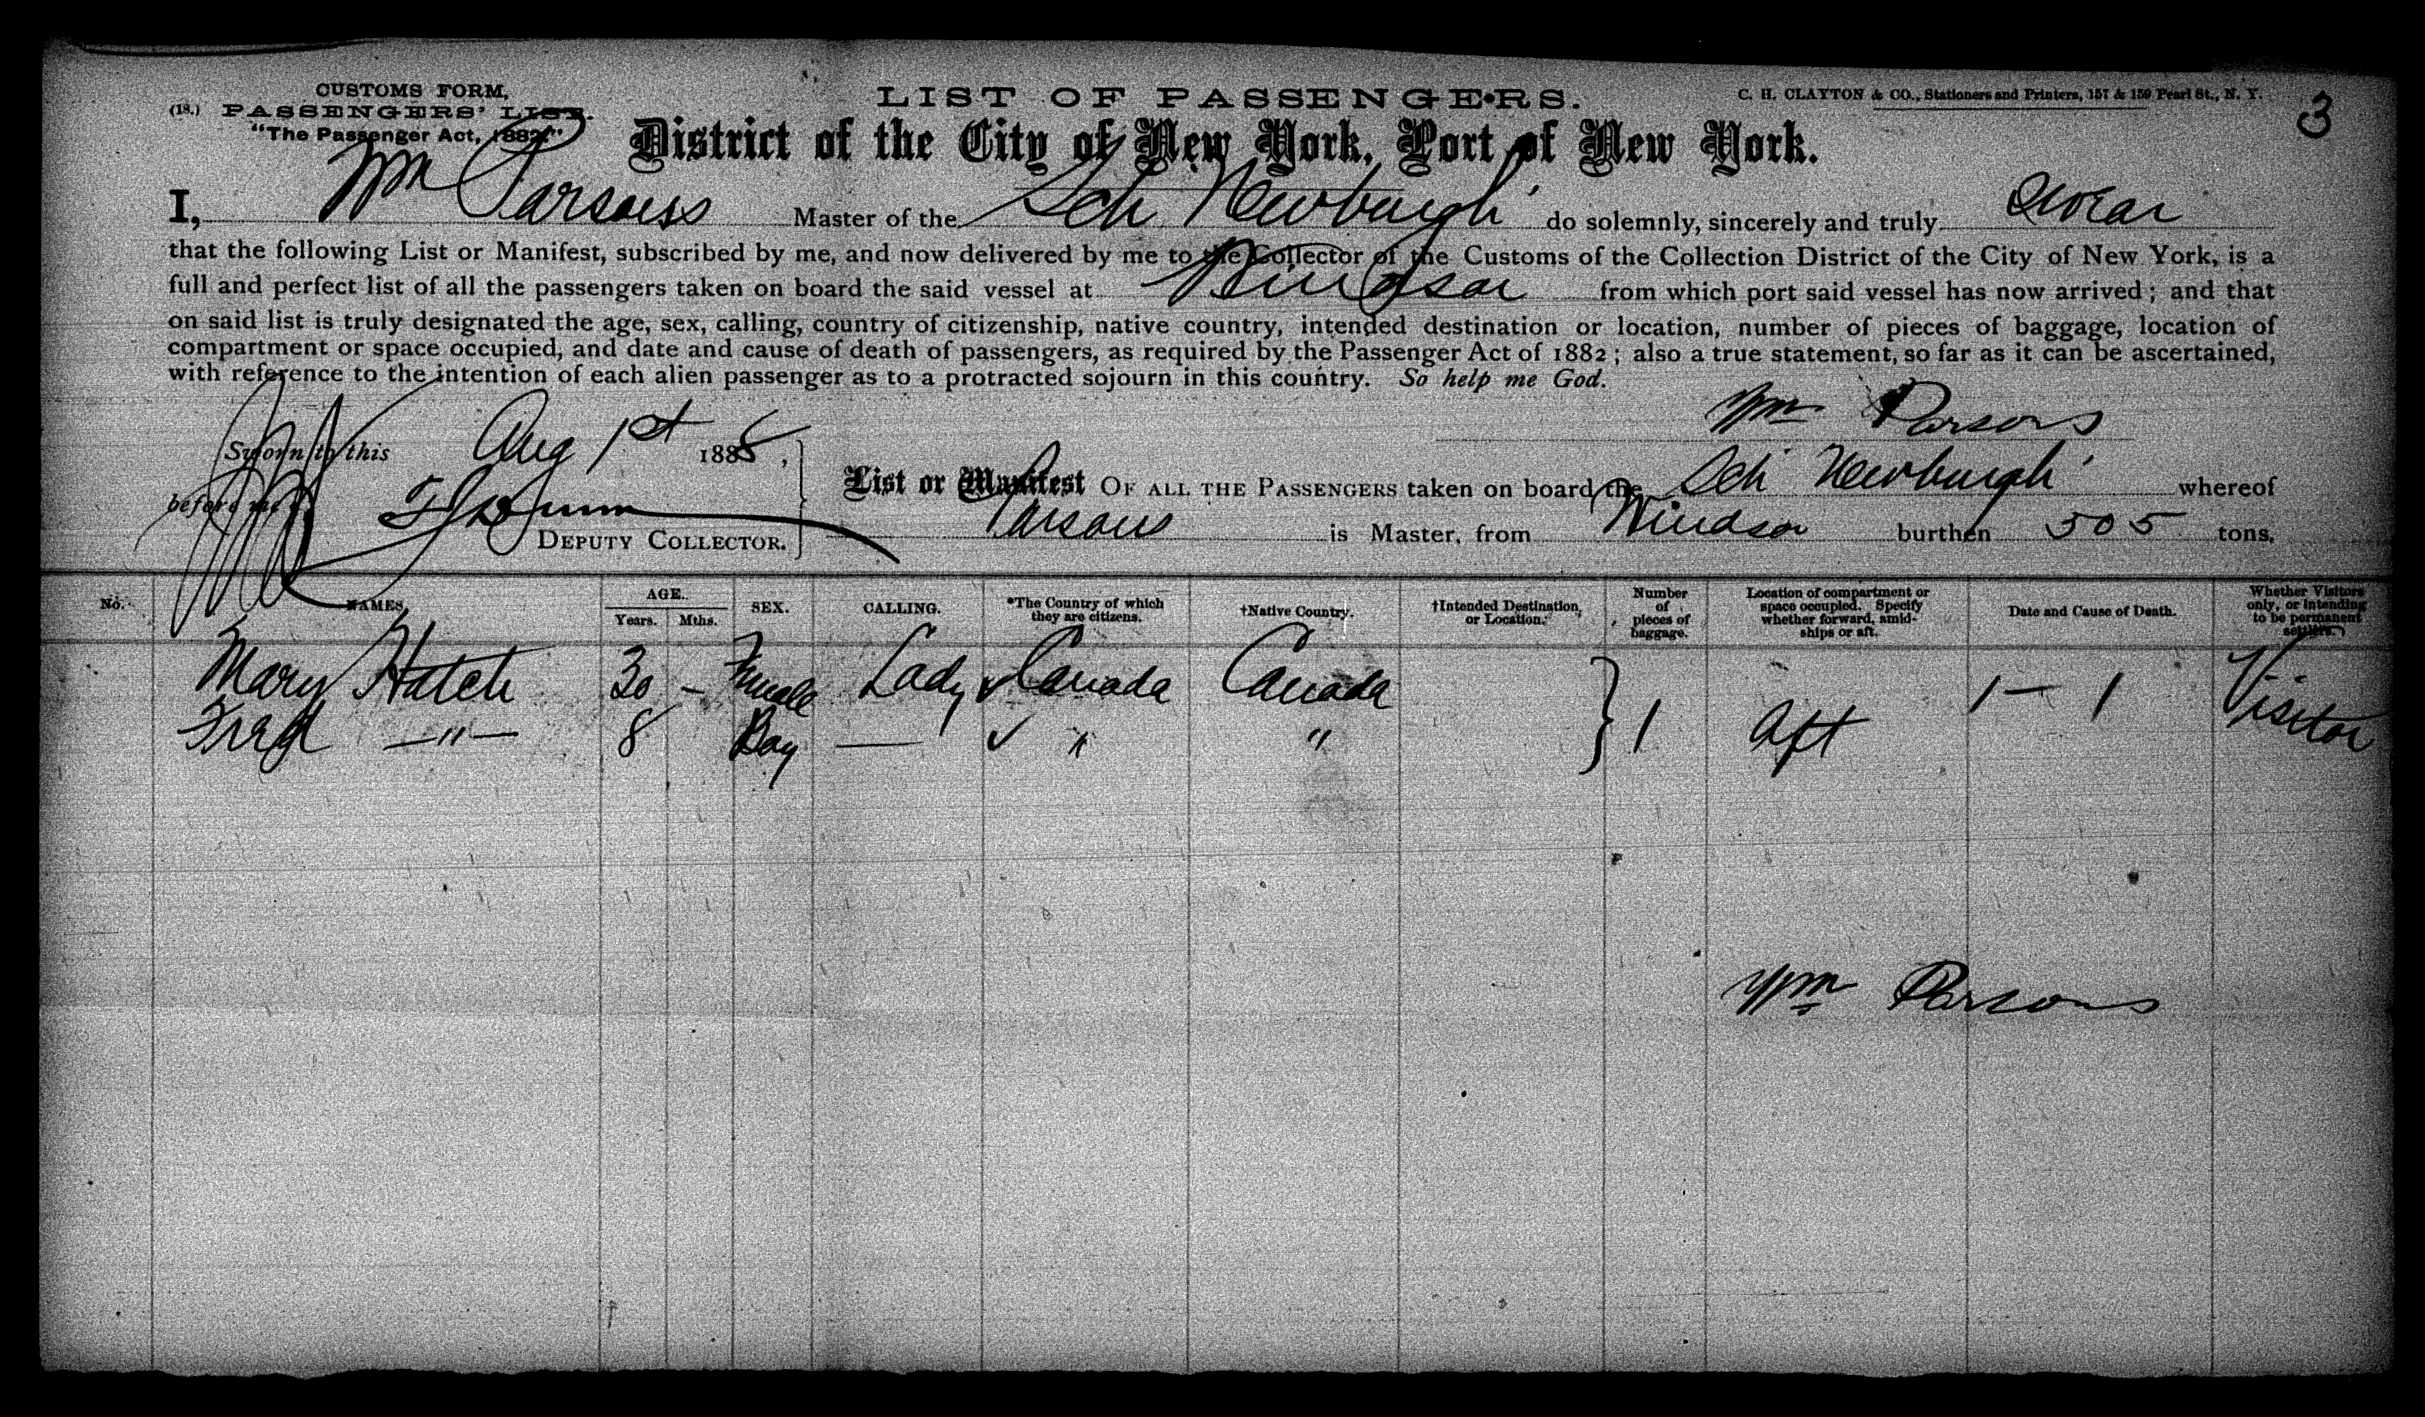 CUSTOMS FORM,
(18.) PASSENGERS' LIST.
"The Passenger Act, 1882."
LIST OF PASSENGERS.
C. H. CLAYTON & CO., Stationers and Printers, 157 & 159 Pearl St., N. Y.
3
District of the City of New York, Port of New York.
I, Wm Parsons Master of the Sch Newburgh do solemnly, sincerely and truly swear
that the following List or Manifest, subscribed by me, and now delivered by me to the Collector of the Customs of the Collection District of the City of New York, is a
full and perfect list of all the passengers taken on board the said vessel at Windsor from which port said vessel has now arrived; and that
on said list is truly designated the age, sex, calling, country of citizenship, native country, intended destination or location, number of pieces of baggage, location of
compartment or space occupied, and date and cause of death of passengers, as required by the Passenger Act of 1882; also a true statement, so far as it can be ascertained,
with reference to the intention of each alien passenger as to a protracted sojourn in this country. So help me God.
Wm Parsons
Sworn to this Aug 1st 1888,
before me
DEPUTY COLLECTOR.
List or Manifest OF ALL THE PASSENGERS taken on board the Sch Newburgh whereof
Parsons is Master, from Windsor burthen 505 tons,
No. NAMES, AGE. Years. Mths. SEX. CALLING. *The Country of which they are citizens. †Native Country. †Intended Destination, or Location. Number of pieces of baggage. Location of compartment or space occupied. Specify whether forward, amidships or aft. Date and Cause of Death. Whether Visitors only, or intending to be permanent settlers.
Mary Hatch 30 – Female Lady ✓ Canada Canada } 1 Aft 1 — 1 Visitor
Fred —"— 8 Boy — ✓ " "
Wm Parsons